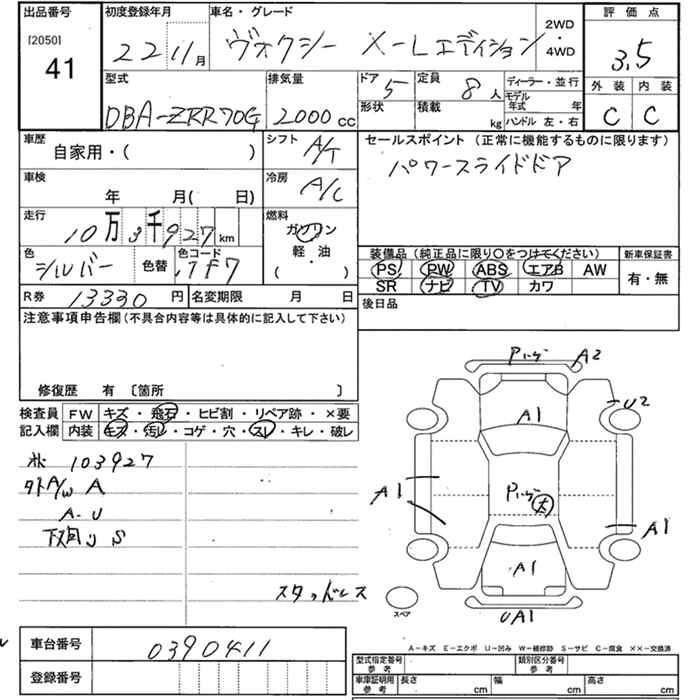 出品番号 初度登録年月 車名・グレード 2WD・4WD 評価点
[2050] 41 22 11月 ヴォクシー X-Lエディション 3.5
型式 排気量 ドア 5 定員 8人 ディーラー・並行 外装 内装
DBA-ZRR70G 2000cc 形状 積載 kg モデル年式 年 C C
ハンドル 左・右
車歴 シフト A/T セールスポイント (正常に機能するものに限ります)
自家用・( ) パワースライドドア
車検 冷房 A/C
年 月( 日)
走行 燃料
10万3千927km ガソリン
軽・油
( ・ )
色 シルバー 色替 色コード 1F7
装備品 (純正品に限り○をつけてください) 新車保証書
PS PW ABS エアB AW 有・無
SR ナビ TV カワ
R券 13330円 名変期限 月 日 後日品
注意事項申告欄 (不具合内容等は具体的に記入して下さい)
修復歴 有 〔箇所 〕
検査員 FW キズ・飛石・ヒビ割・リペア跡・×要
記入欄 内装 キズ・汚レ・コゲ・穴・スレ・キレ・破レ
103927
外A/W A
A-U
下廻リ S
スタッドレス
A2
U2
A1
A1
A1
A1
UA1
スペア
A-キズ E-エクボ U-凹み W-補修跡 S-サビ C-腐食 ××-交換済
車台番号 0390411
登録番号
型式指定番号 参考 類別区分番号 参考
車庫証明用 参考 長さ cm 幅 cm 高さ cm